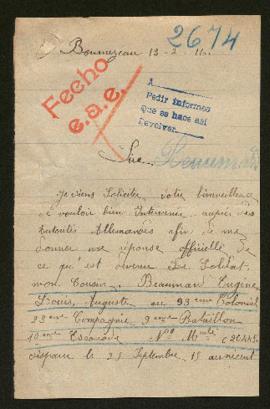 2674
Fecho
e.a.e.
A
Pedir informes
que se hace asi
Devolver
Sire
Je viens Solicité votre bienveillance
de vouloir bien Intervenir auprès des
autorités Allemandes afin de me
donner une réponse officielle de
ce qu'est devenu Le Soldat
mon Cousin Beaumard Eugène
Louis, Auguste au 93eme Colonial
23eme Compagnie 9eme Bataillon
10eme Escouade
disparu le 25 Septembre 15